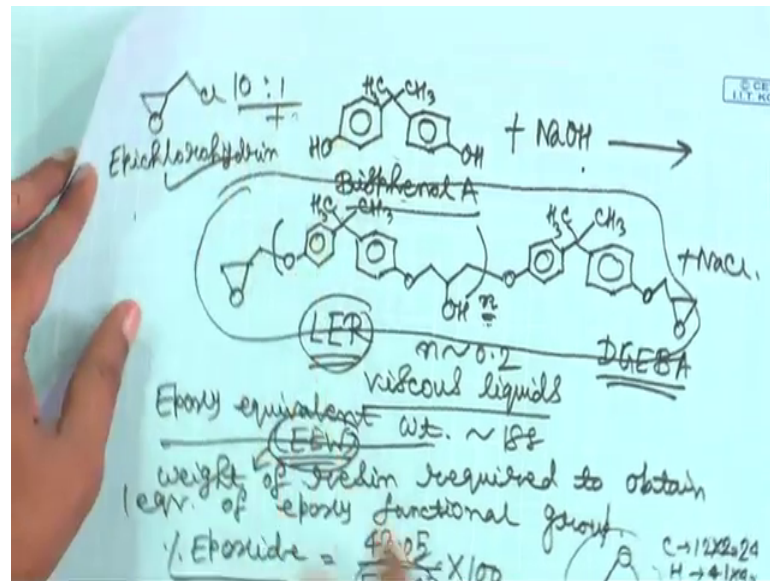 Cl 10 : 1
H₃C CH₃
© CE
I.I.T. KG
HO OH + NaOH →
Epichlorohydrin
Bisphenol A
H₃C CH₃ H₃C CH₃
O ( O O OH n O O O + NaCl.
LER n ~ 0.2 DGEBA
viscous liquids
Epoxy equivalent wt. ~ 188
(EEW)
weight of resin required to obtain
1 eqv. of epoxy functional group.
% Epoxide = 43.05 × 100
C → 12×2=24